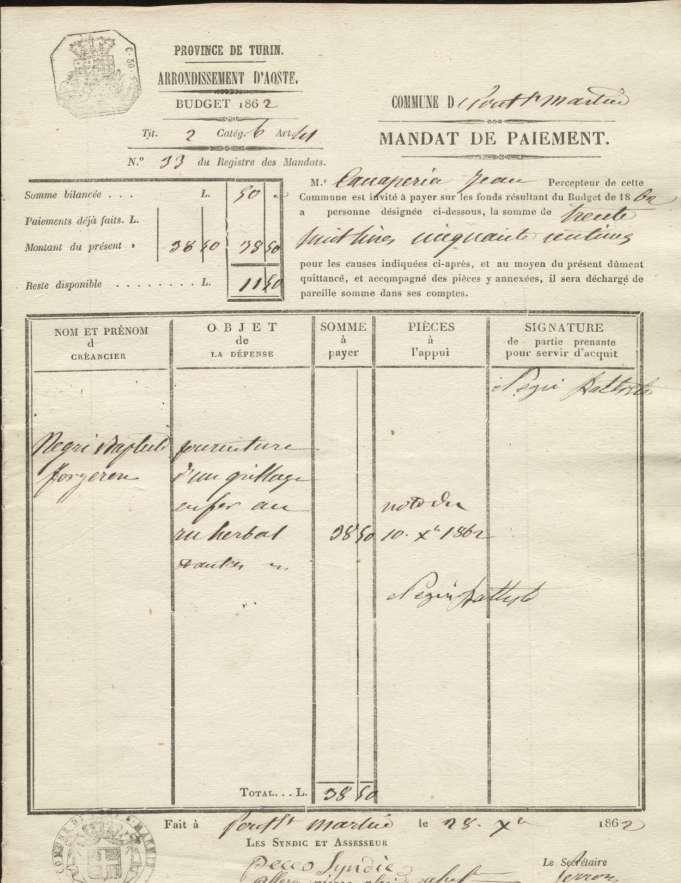 C. 50
PROVINCE DE TURIN.
ARRONDISSEMENT D'AOSTE.
BUDGET 1862
Tit. 2 Catég. 6 Art.
N.º 33 du Registre des Mandats.
COMMUNE D Pont St Martin
MANDAT DE PAIEMENT.
Somme bilancée . . . L. 50
Paiements déjà faits. L.
Montant du présent » 38 50 38 50
Reste disponible . . . . . . . . L. 11 50
M.r Canaperia Jean Percepteur de cette
Commune est invité à payer sur les fonds résultant du Budget de 1862
a personne désignée ci-dessous, la somme de trente
huit livres cinquante centimes
pour les causes indiquées ci-après, et au moyen du présent dûment
quittancé, et accompagné des pièces y annexées, il sera déchargé de
pareille somme dans ses comptes.
NOM ET PRÉNOM
d
CRÉANCIER
OBJET
de
LA DÉPENSE
SOMME
à
payer
PIÈCES
à
l'appui
SIGNATURE
de partie prenante
pour servir d'acquit
Negri Battista
Negri Baptiste
forgeron
fourniture
d'un grillage
en fer au
ru herbal
38 50
note du
10. Xbre 1862
Negri Battista
TOTAL... L. 38 50
Fait à Pont St Martin le 28. Xbre 1862
LES SYNDIC ET ASSESSEUR
Pecco Syndic
Le Secrétaire